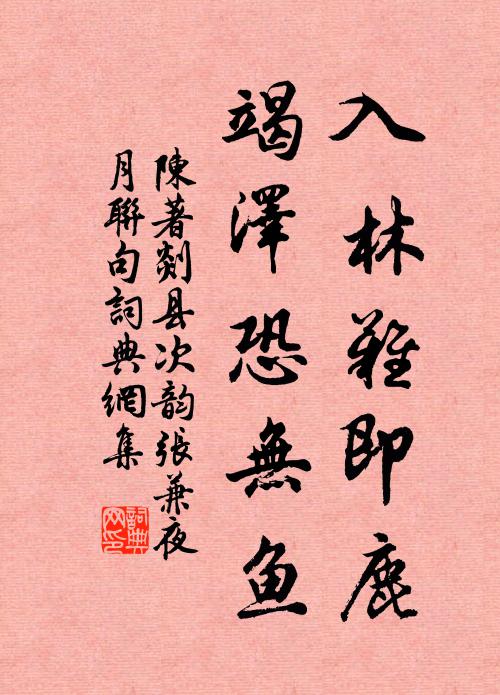 入林難即鹿
竭澤恐無魚
陳著剡县次韵張兼夜
月聯句詞典網集
詞典网印